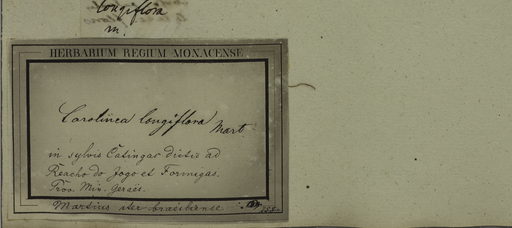 longiflora
m.
HERBARIUM REGIUM MONACENSE.
Carolinea longiflora Mart
in sylvis Catingas dictis ad
Reacho do Jogo et Formigas.
Prov. Min. Geraës.
Martius iter brasiliense